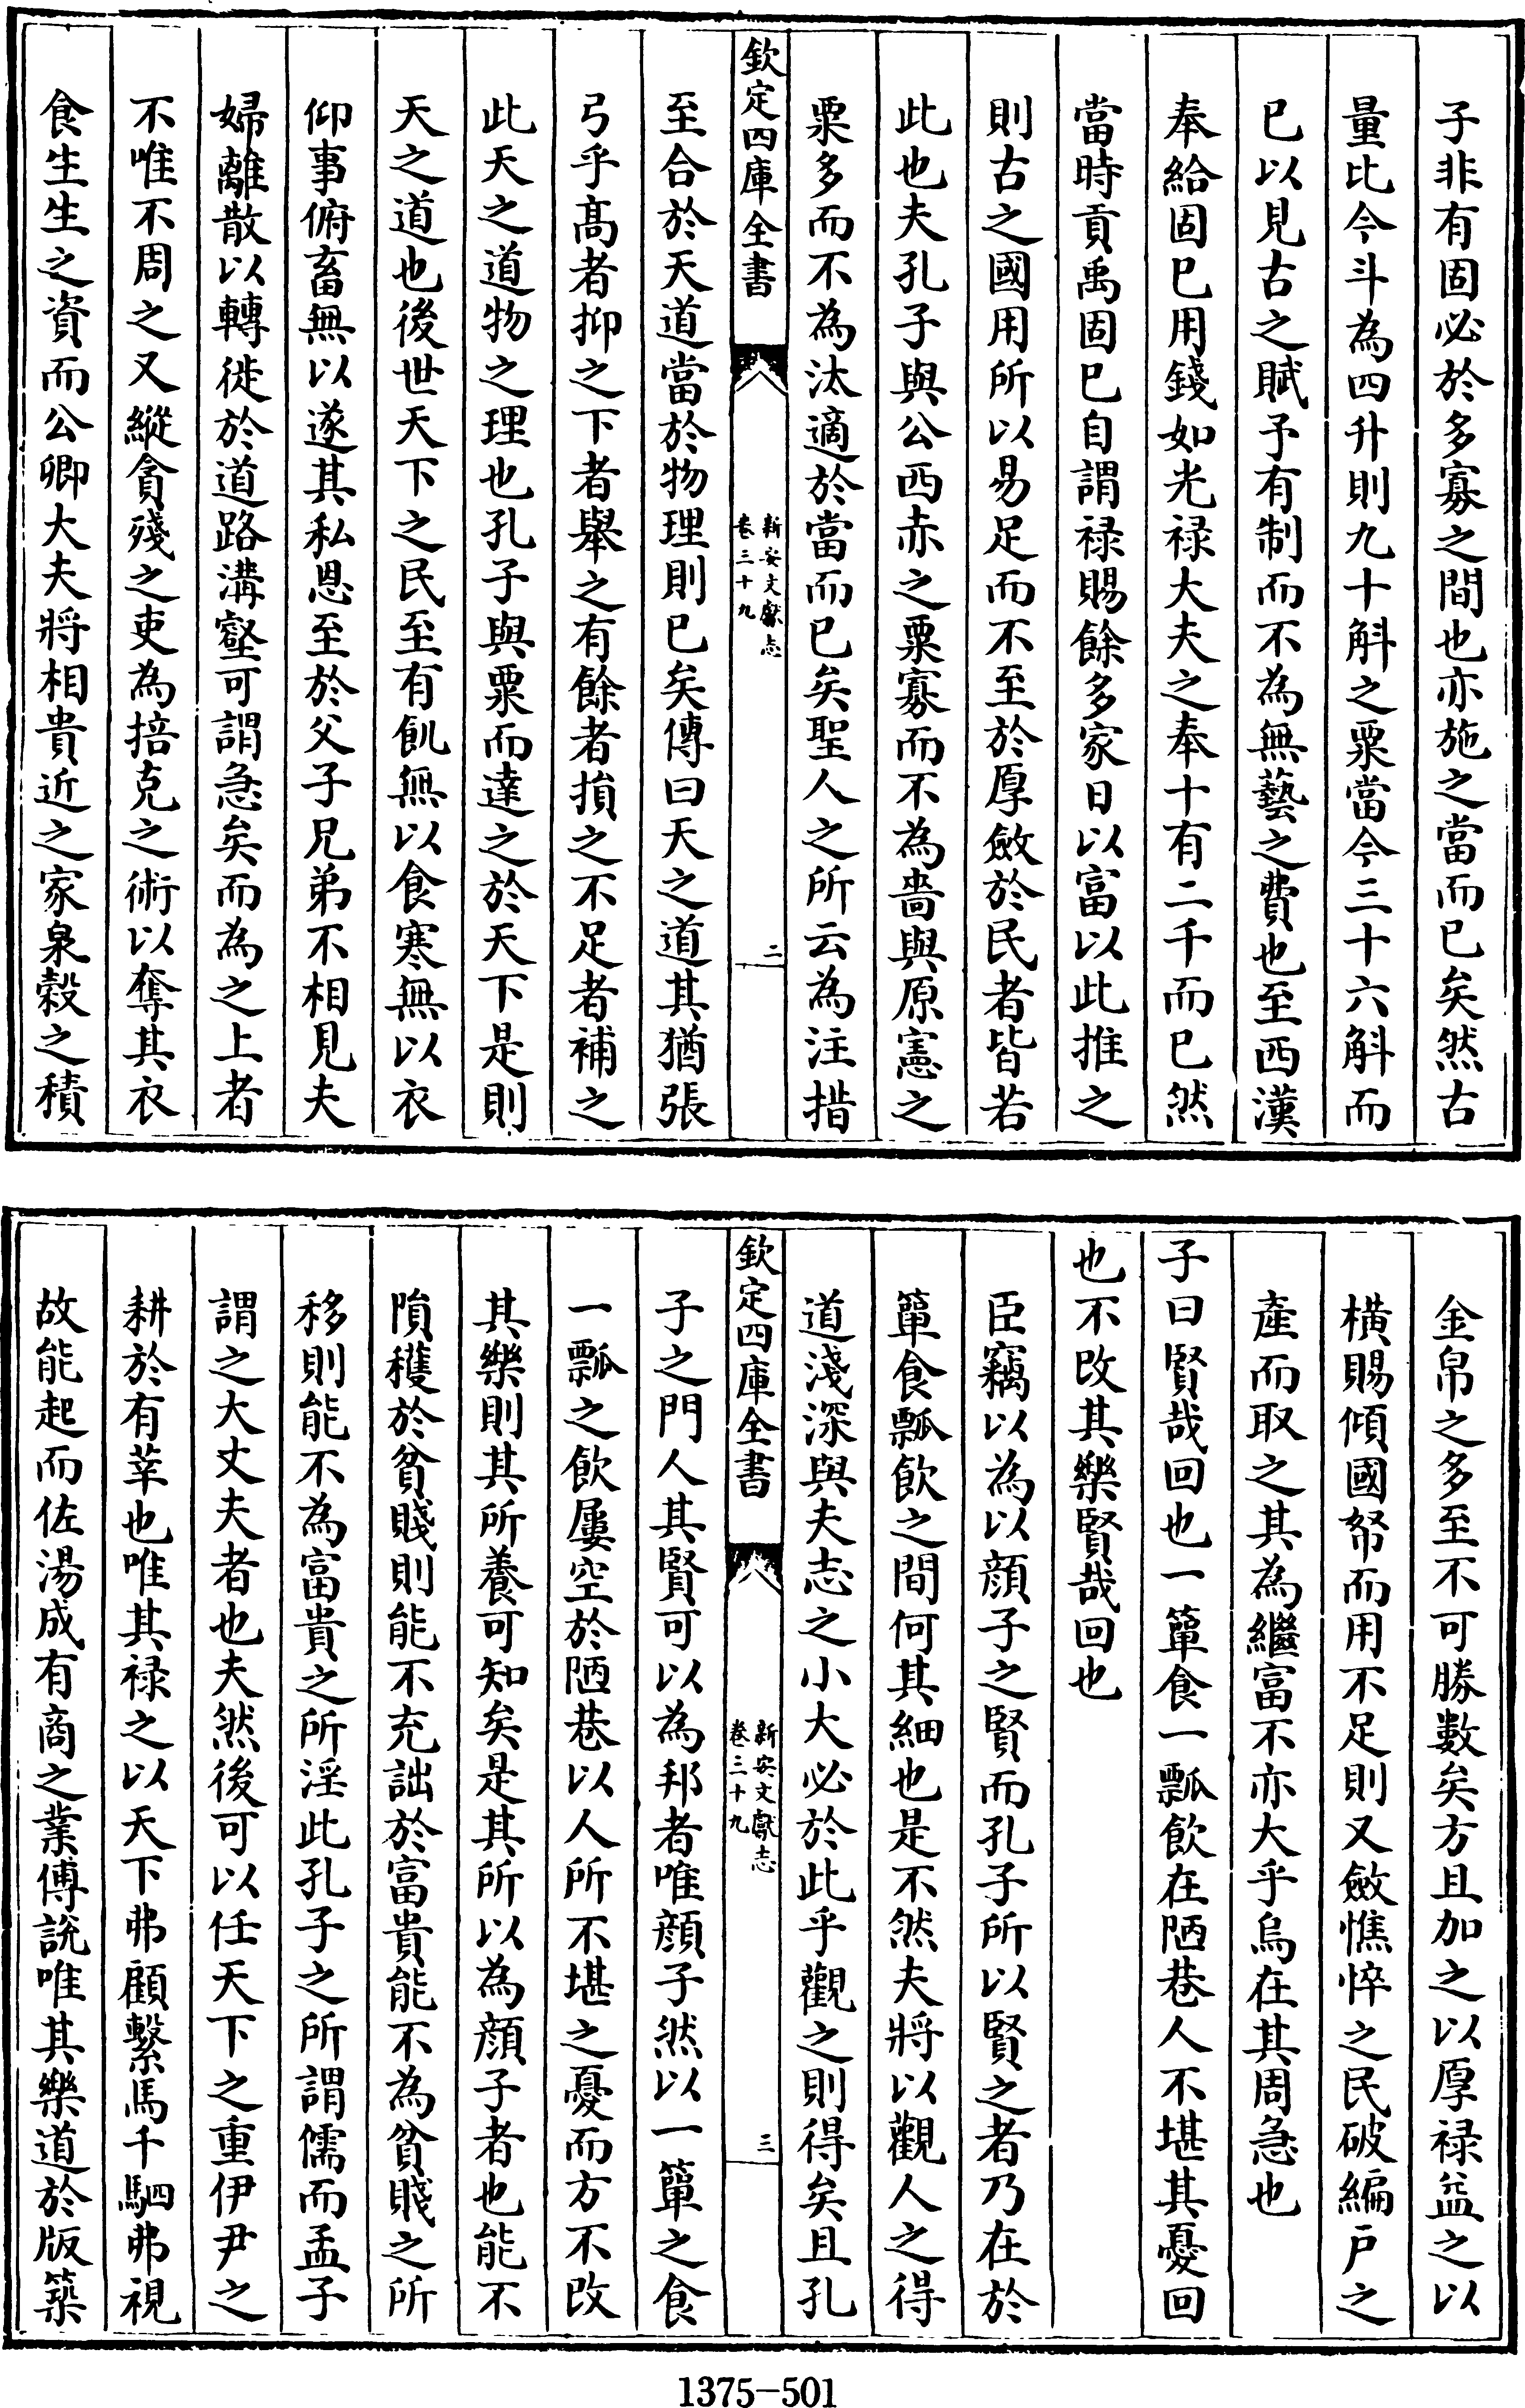 子非有固必於多寡之間也亦施之當而已矣然古
量比今斗為四升則九十斛之粟當今三十六斛而
已以見古之賦予有制而不為無藝之費也至西漢
奉給固已用錢如光禄大夫之奉十有二千而已然
當時貢禹固已自謂禄賜餘多家日以富以此推之
則古之國用所以易足而不至於厚斂於民者皆若
此也夫孔子與公西赤之粟寡而不為嗇與原憲之
粟多而不為汰適於當而已矣聖人之所云為注措
欽定四庫全書
新安文獻志
卷三十九
二
至合於天道當於物理則已矣傳曰天之道其猶張
弓乎髙者抑之下者舉之有餘者損之不足者補之
此天之道物之理也孔子與粟而達之於天下是則
天之道也後世天下之民至有飢無以食寒無以衣
仰事俯畜無以遂其私恩至於父子兄弟不相見夫
婦離散以轉徙於道路溝壑可謂急矣而為之上者
不唯不周之又縱貪殘之吏為掊克之術以奪其衣
食生生之資而公卿大夫將相貴近之家泉榖之積
金帛之多至不可勝數矣方且加之以厚禄益之以
横賜傾國帑而用不足則又斂憔悴之民破編户之
產而取之其為繼富不亦大乎烏在其周急也
子曰賢哉回也一簞食一瓢飲在陋巷人不堪其憂回
也不改其樂賢哉回也
臣竊以為以顔子之賢而孔子所以賢之者乃在於
簞食瓢飲之間何其細也是不然夫將以觀人之得
道淺深與夫志之小大必於此乎觀之則得矣且孔
欽定四庫全書
新安文獻志
卷三十九
三
子之門人其賢可以為邦者唯顔子然以一簞之食
一瓢之飲屢空於陋巷以人所不堪之憂而方不改
其樂則其所養可知矣是其所以為顔子者也能不
隕穫於貧賤則能不充詘於富貴能不為貧賤之所
移則能不為富貴之所淫此孔子之所謂儒而孟子
謂之大丈夫者也夫然後可以任天下之重伊尹之
耕於有莘也唯其禄之以天下弗顧繫馬千駟弗視
故能起而佐湯成有商之業傅説唯其樂道於版築
1375-501